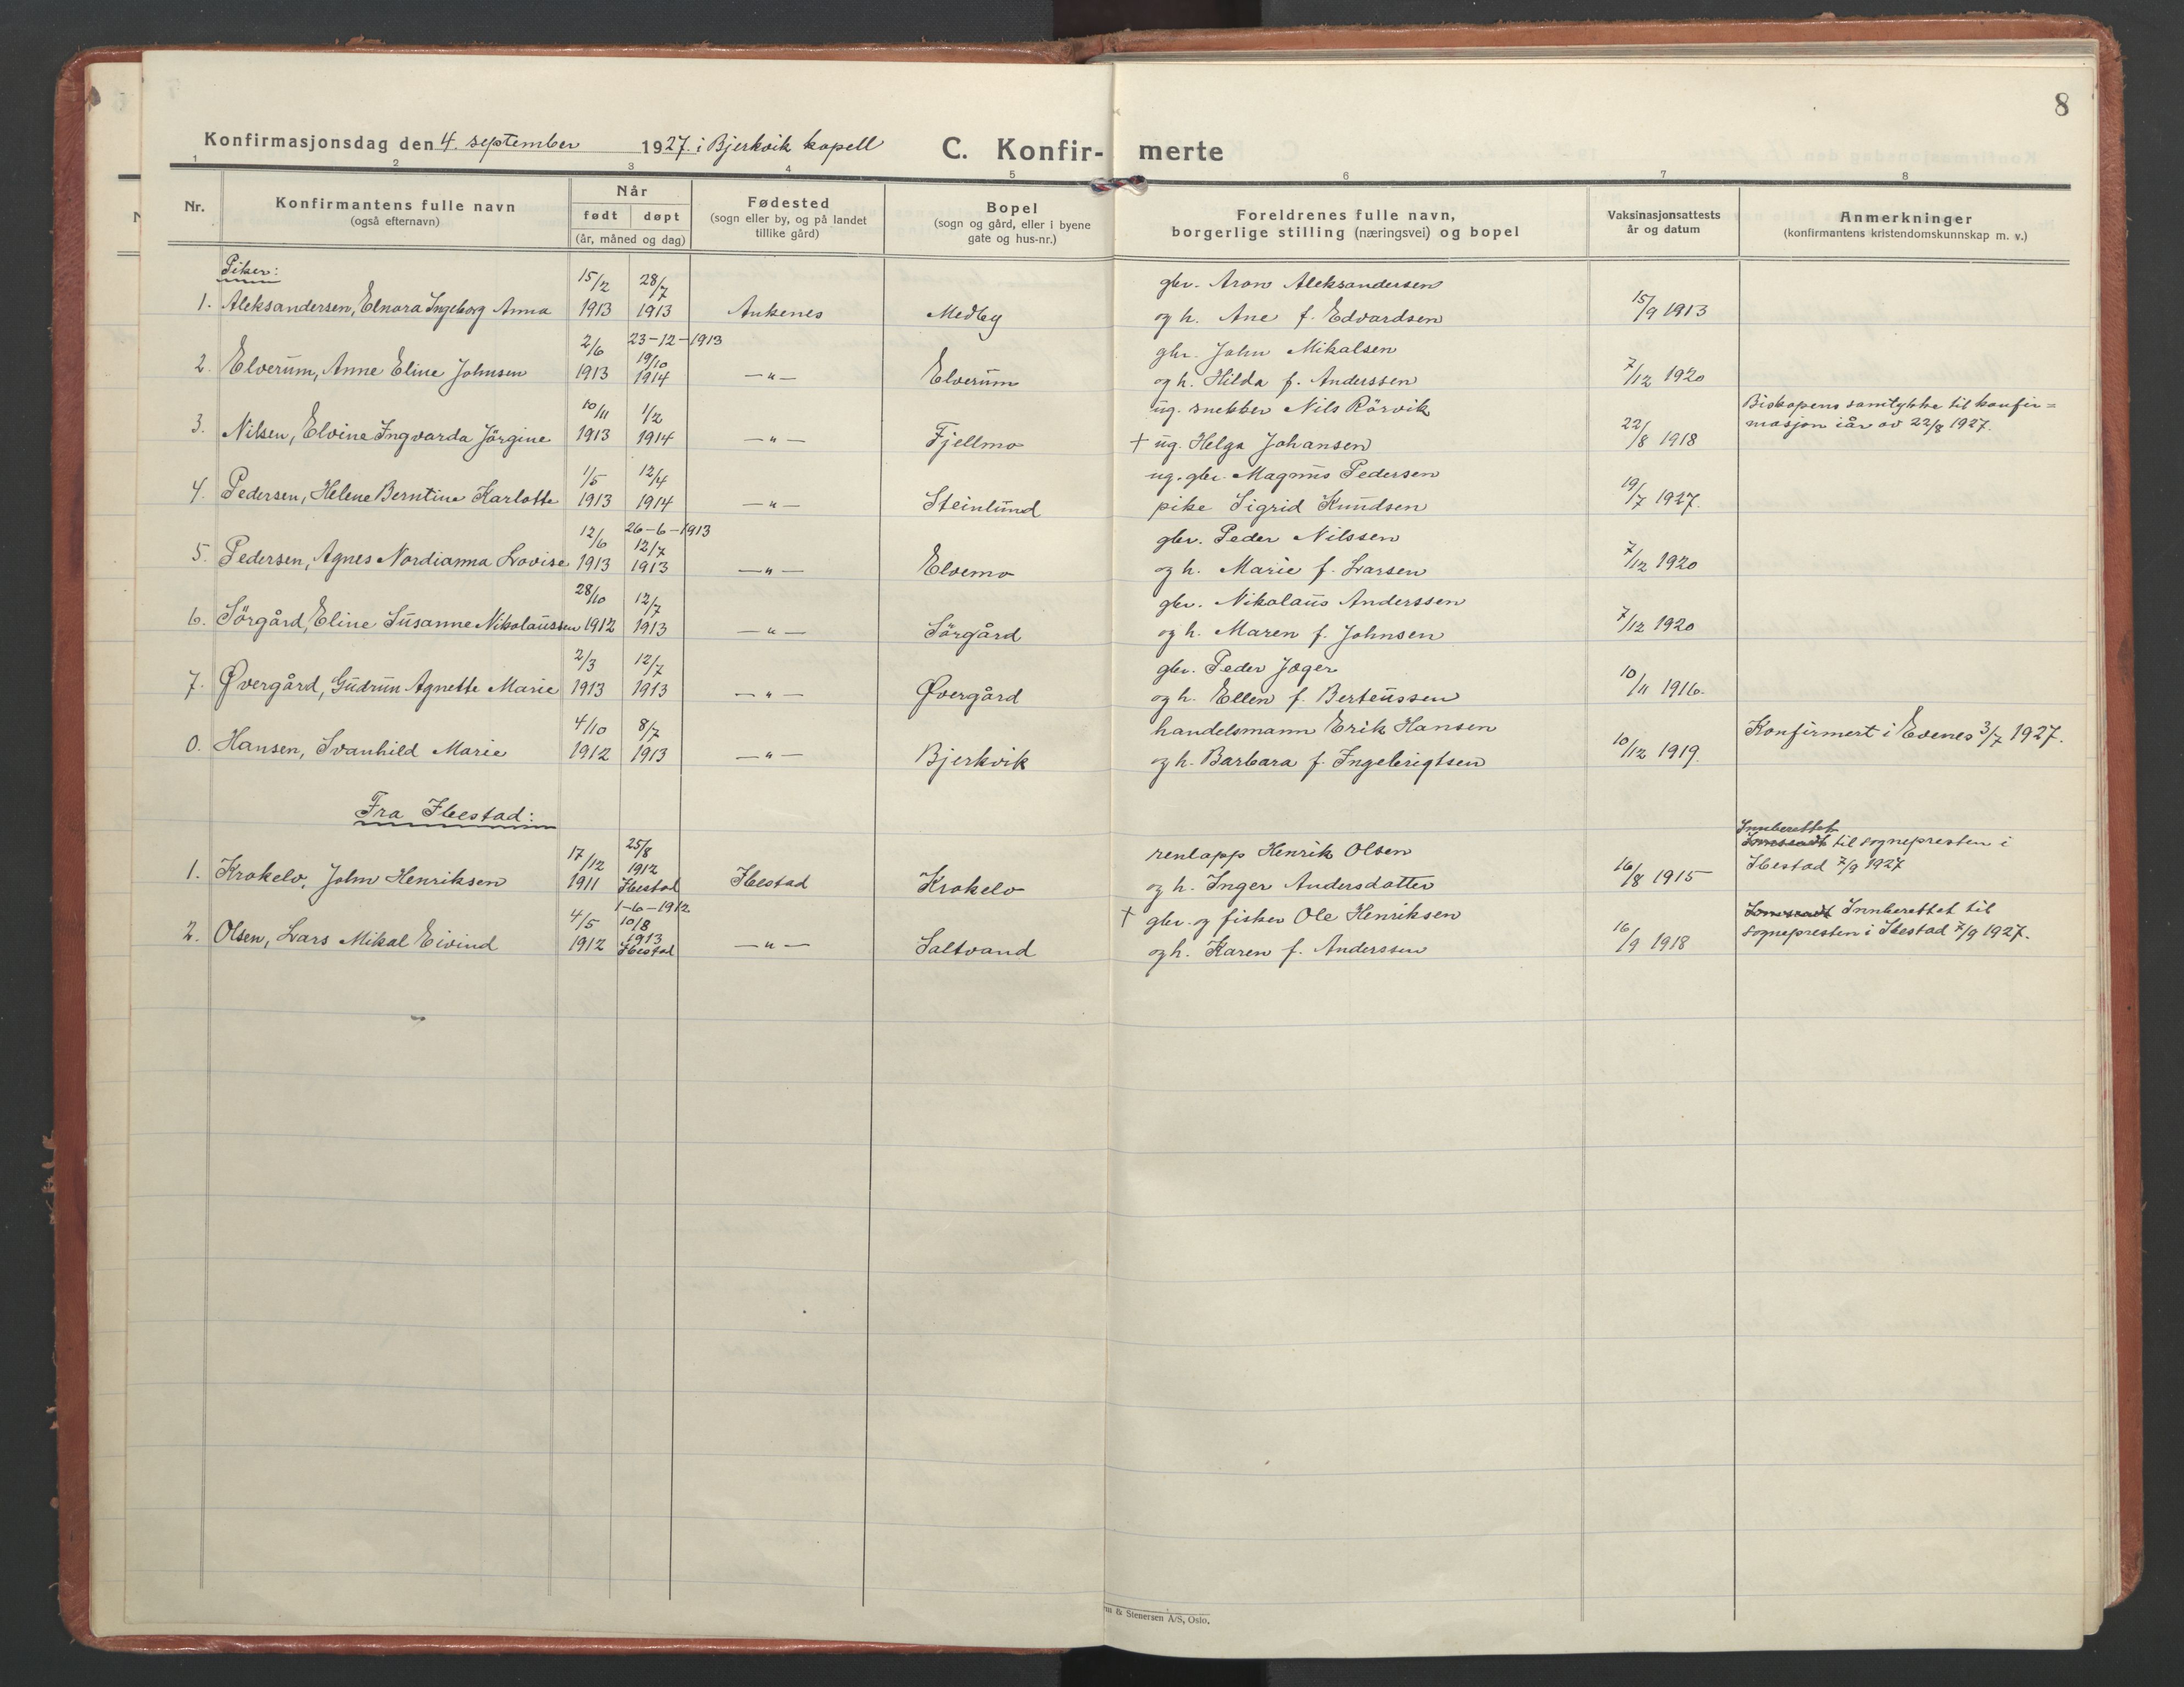 8
Konfirmasjonsdag den 4. september 1927. i Bjerkvik kapell
C. Konfir- merte
1 2 3 4 5 6 7 8
Nr.
Konfirmantens fulle navn
(også efternavn)
Når
født døpt
(år, måned og dag)
Fødested
(sogn eller by, og på landet
tillike gård)
Bopel
(sogn og gård, eller i byene
gate og hus-nr.)
Foreldrenes fulle navn,
borgerlige stilling (næringsvei) og bopel
Vaksinasjonsattests
år og datum
Anmerkninger
(konfirmantens kristendomskunnskap m. v.)
Piker:
15/2 28/7 gbr. Aron Aleksandersen
1. Aleksandersen, Elnora Ingeborg Anna 1913 1913 Ankenes Medby og h. Ane f. Edvardsen 15/9 1913
2/6 23-12-1913 19/10 gbr. John Mikalsen
2. Elverum, Anne Eline Johnsen 1913 1914 —"— Elverum og h. Hilda f. Anderssen 7/12 1920
10/11 1/2 ug. snekker Nils Rörvik Biskopens samtykke til konfir=
3. Nilsen, Elvine Ingvarda Jörgine 1913 1914 —"— Fjellmo † ug. Helga Johansen 22/8 1918 masjon iår av 22/8 1927.
1/5 12/4 ug. gbr. Magnus Pedersen
4. Pedersen, Helene Berntine Karlotte 1913 1914 —"— Steinlund pike Sigrid Knudsen 19/7 1927.
12/6 26-6-1913 12/7 gbr. Peder Nilssen
5. Pedersen, Agnes Nordianna Lovise 1913 1913 —"— Elvemo og h. Marie f. Larsen 7/12 1920
28/10 12/7 gbr. Nikolaus Anderssen
6. Sörgård, Eline Susanne Nikolaussen 1912 1913 —"— Sörgård og h. Maren f. Johnsen 7/12 1920
2/3 12/7 gbr. Peder Jæger
7. Øvergård, Gudrun Agnette Marie 1913 1913 —"— Øvergård og h. Ellen f. Berteussen 10/11 1916.
4/10 8/7 handelsmann Erik Hansen Konfirmert i Evenes 3/7 1927.
0. Hansen, Svanhild Marie 1912 1913 —"— Bjerkvik og h. Barbara f. Ingebrigtsen 10/12 1919.
Fra Ibestad:
17/12 25/8 1912 renlapp Henrik Olsen Innberettet til sognepresten i
1. Krokelv, John Henriksen 1911 Ibestad Ibestad Krokelv og h. Inger Andersdatter 16/8 1915 Ibestad 7/9 1927
4/5 1-6-1912 10/8 1913 † gbr. og fisker Ole Henriksen Innberettet til
2. Olsen, Lars Mikal Eivind 1912 Ibestad —"— Saltvand og h. Karen f. Anderssen 16/9 1918 sognepresten i Ibestad 7/9 1927.
& Stenersen A/S, Oslo.